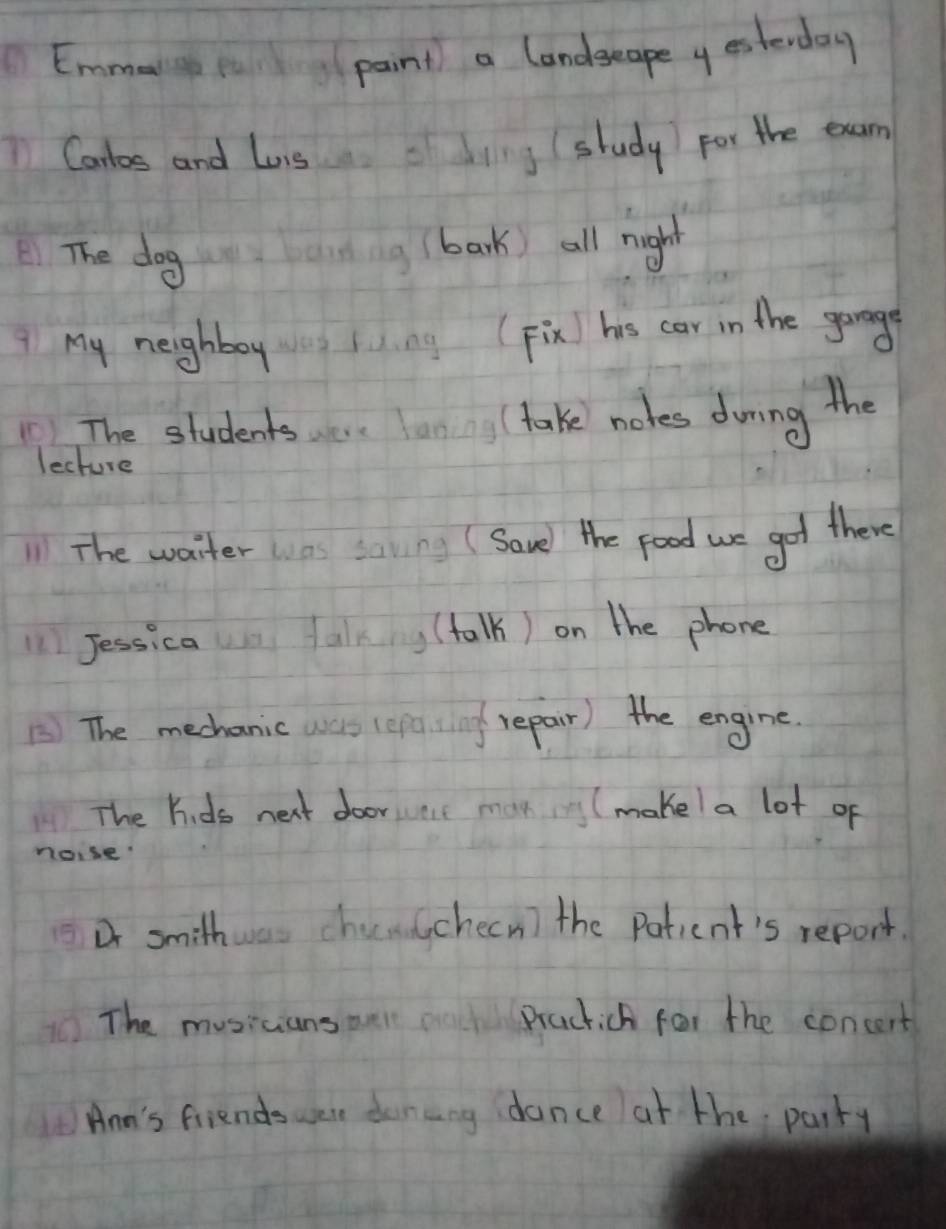 6) Emma painting (paint) a landscape yesterday
7) Carlos and Luis was studying (study) for the exam
8) The dog was barking (bark) all night
9) My neighboy was fixing (Fix) his car in the garage
10) The students were taking (take) notes during the
lecture
11) The waiter was saving (Save) the food we got there
12) Jessica was talking (talk) on the phone
13) The mechanic was repairing (repair) the engine.
14) The Kids next door were making (make) a lot of
noise.
15) Dr smith was (checn) the Patient's report.
The musicians were Practich for the concert
Ann's friends were dancing (dance) at the party